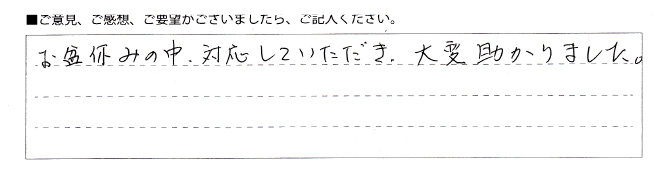 ■ご意見、ご感想、ご要望がございましたら、ご記入ください。
お盆休みの中、対応していただき、大変助かりました。